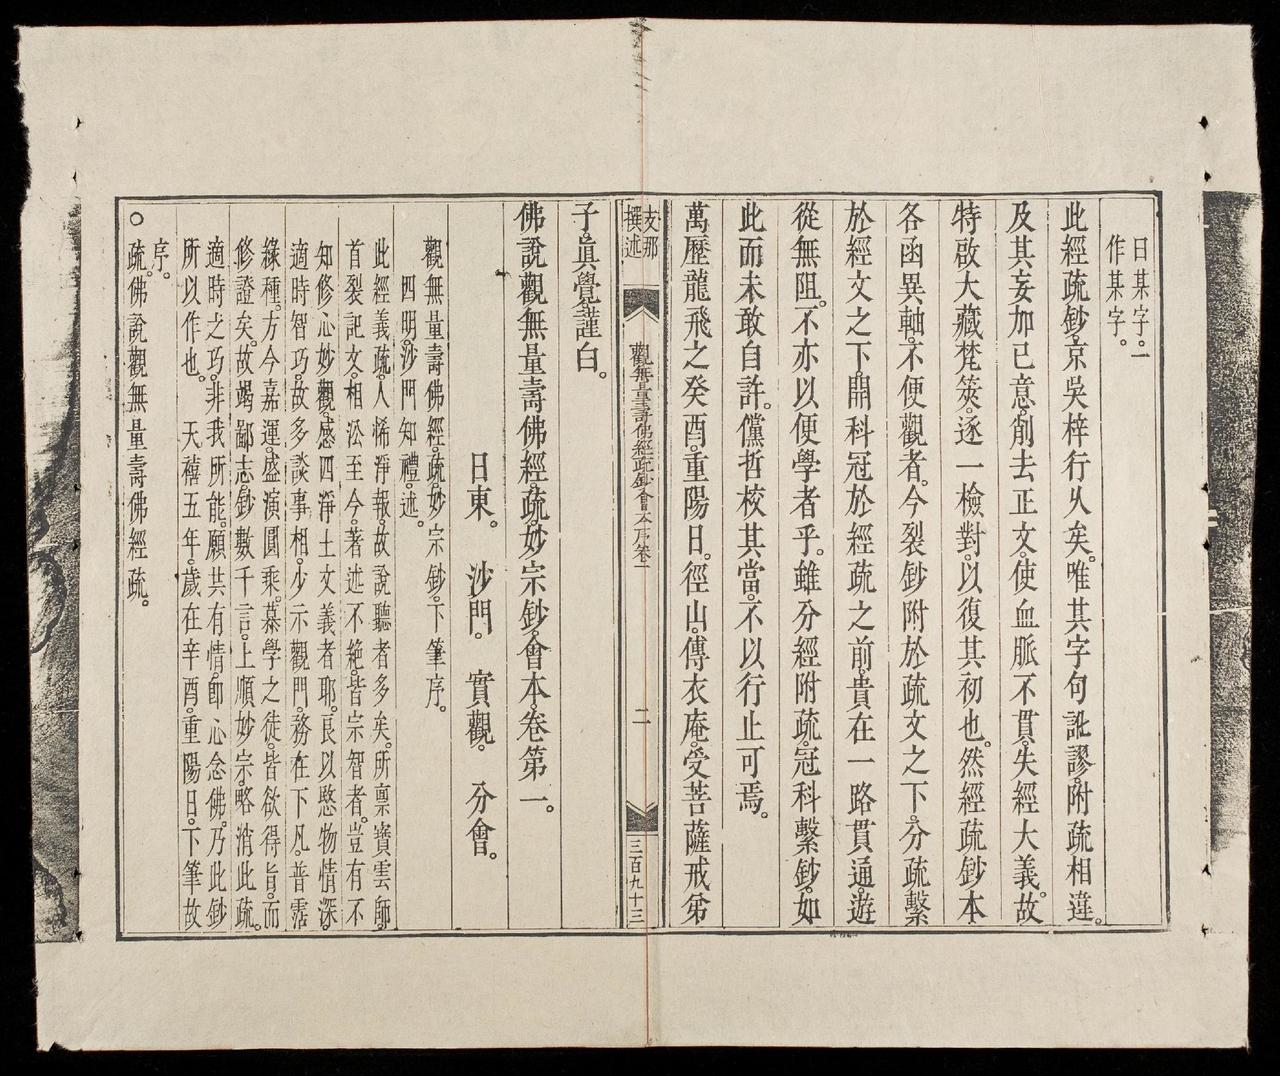 曰某字。一
作某字。
此經疏鈔。京吳梓行久矣。唯其字句訛謬。附疏相違。
及其妄加己意。削去正文。使血脈不貫。失經大義。故
特啟大藏梵筴。逐一檢對。以復其初也。然經疏鈔本
各函異軸。不便觀者。今裂鈔附於疏文之下。分疏繫
於經文之下。開科冠於經疏之前。貴在一路貫通。遊
從無阻。不亦以便學者乎。雖分經附疏。冠科繫鈔。如
此而未敢自許。儻哲校其當。不以行止可焉。
萬歷龍飛之癸酉。重陽日。徑山。傳衣庵。受菩薩戒弟
支那
撰述
觀無量壽佛經疏鈔會本序卷一
二
三百九十三
子。真覺。謹白。
佛說觀無量壽佛經。疏。妙宗鈔。會本。卷第一。
日東。 沙門。 實觀。 分會。
觀無量壽佛經。疏。妙宗鈔。下筆序。
四明。沙門知禮。述。
此經義疏。人悕淨報。故說聽者多矣。所禀寶雲師。
首裂記文。相沿至今。著述不絶。皆宗智者。豈有不
知修心妙觀。感四淨土文義者耶。良以愍物情深。
適時智巧。故多談事相。少示觀門。務在下凡。普霑
緣種。方今嘉運。盛演圓乘。慕學之徒。皆欲得旨。而
修證矣。故竭鄙志。鈔數千言。上順妙宗。略消此疏。
適時之巧。非我所能。願共有情。卽心念佛。乃此鈔
所以作也。 天禧五年。歲在辛酉。重陽日。下筆故
序。
○疏。佛說觀無量壽佛經疏。